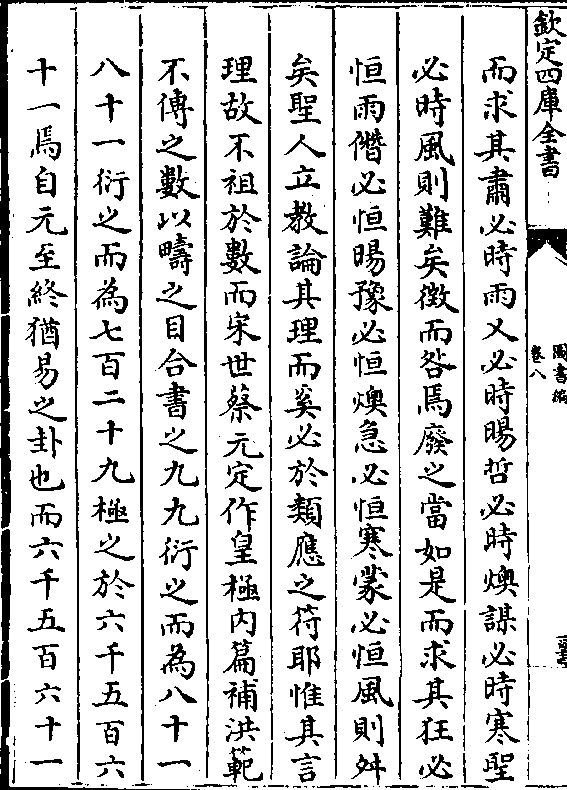 欽定四庫全書
圖書編
卷八
而求其肅必時雨乂必時暘哲必時燠謀必時寒聖
必時風則難矣徴而咎焉廢之當如是而求其狂必
恒雨僭必恒暘豫必恒燠急必恒寒蒙必恒風則舛
矣聖人立教論其理而奚必於類應之符耶惟其言
理故不祖於數而宋世蔡元定作皇極内篇補洪範
不傳之數以疇之目合書之九九衍之而為八十一
八十一衍之而為七百二十九極之於六千五百六
十一焉自元至終猶易之卦也而六千五百六十一